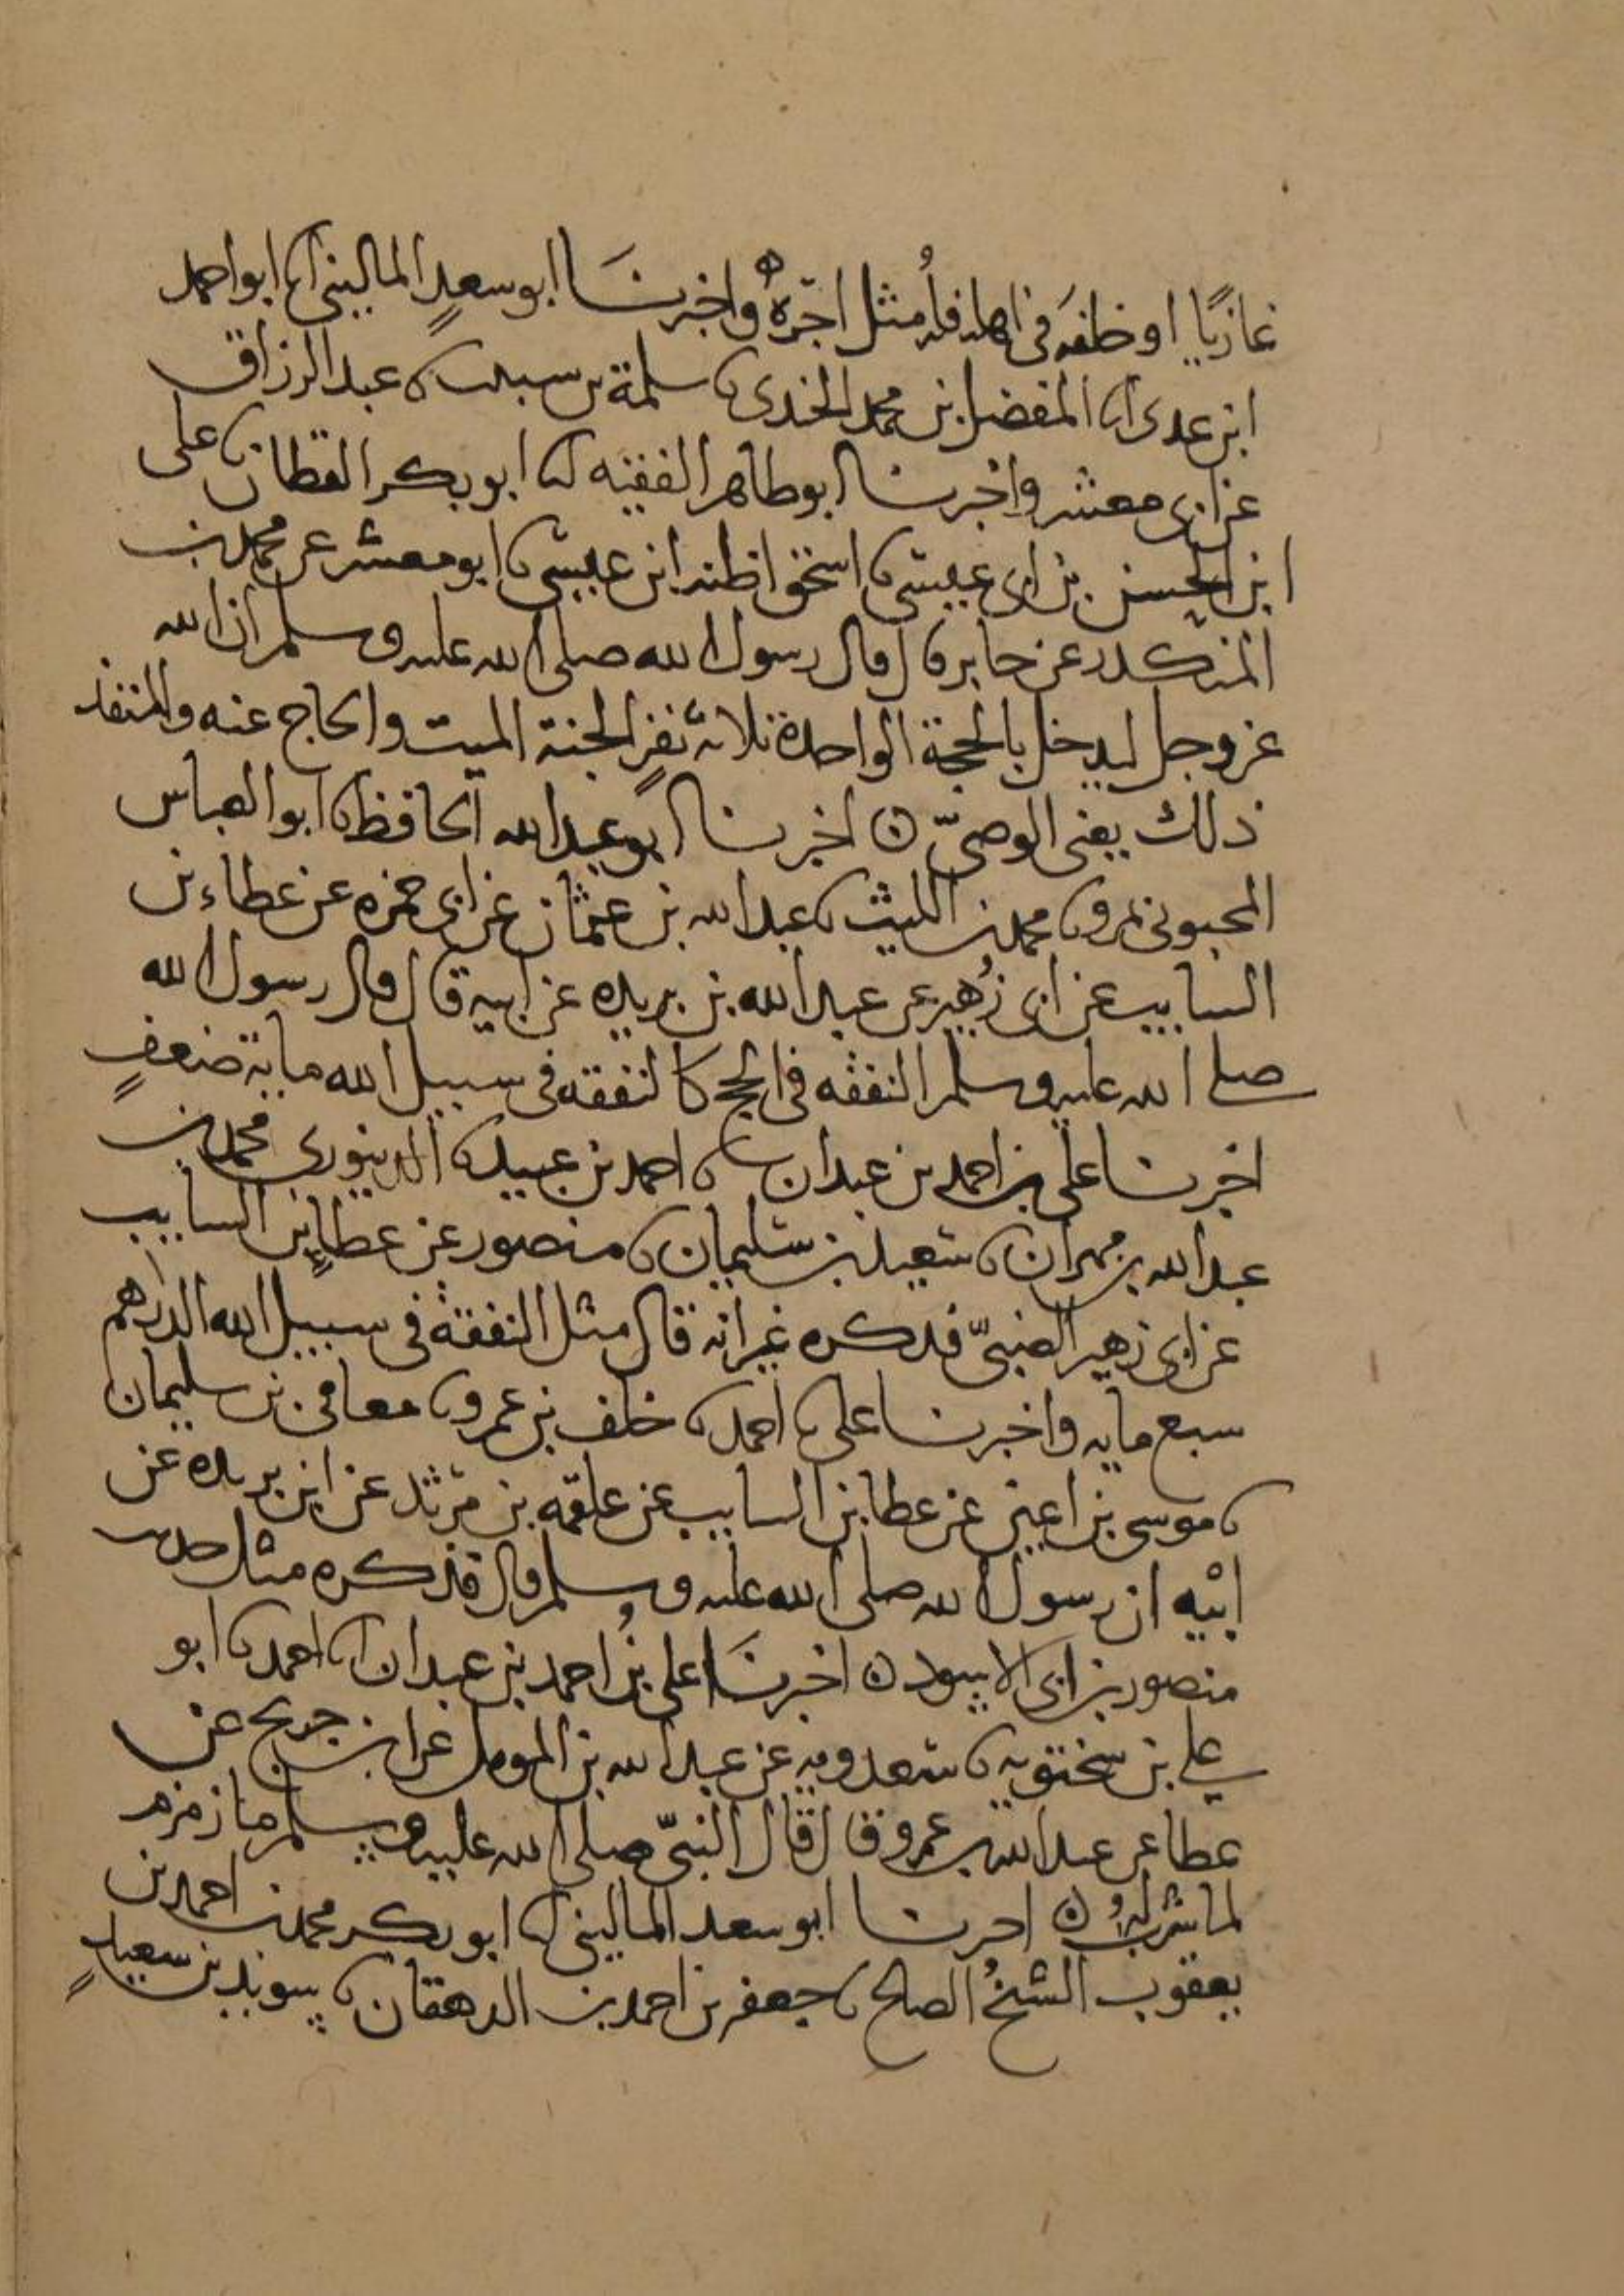 غازيًا او خلفه في اهله فله مثل اجره واخبرنا ابو سعدٍ الماليني انا ابو احمد
ابن عدي انا المفضل بن محمد الجندي نا سلمة بن شبيب نا عبد الرزاق
عن ابي معشر واخبرنا ابو طاهر الفقيه انا ابو بكر القطان نا على
ابن الحسن بن ابي عيسى نا اسحق اظنه ابن عيسى نا ابو معشر عن محمد بن
المنكدر عن جابر قال قال رسول الله صلى الله عليه وسلم ان الله
عز وجل ليدخل بالحجة الواحدة ثلاثة نفرٍ الجنة الميت والحاج عنه والمنفذ
ذلك يعنى الوصيّ ن اخبرنا ابو عبد الله الحافظ نا ابو العباس
المحبوبي بمرو نا محمد بن الليث نا عبد الله بن عثمان عن ابي حمزه عن عطاء بن
السايب عن ابي زُهير عن عبد الله بن بريده عن ابيه قال قال رسول الله
صلى الله عليه وسلم النفقه في الحج كالنفقه في سبيل الله ماية ضعفٍ
اخبرنا على بن احمد بن عبدان نا احمد بن عبيد نا الدينوري محمد بن
عبد الله بن مهران نا سعيد بن سليمان نا منصور عن عطاءٍ بن السايب
عن ابي زهير الضبيّ فذكره غير انه قال مثل النفقة في سبيل الله الدرهم
سبع مايه واخبرنا على نا احمد نا خلف بن عمرو نا معافى بن سليمان
نا موسى بن اعين عن عطا بن السايب عن علقمه بن مرثد عن ابن بريده عن
ابيه ان رسول الله صلى الله عليه وسلم قال فذكره مثل حديث
منصور بن ابي الاسود ن اخبرنَا على بنُ احمد بن عبدان انا احمد نا ابو
علي بن سختويه نا سعدويه عن عبد الله بن المومل عن ابن جريج عن
عطا عن عبد الله بن عمرو قال قال النبيّ صلى الله عليه وسلم ما زمزم
لما شرب لهُ ن اخبرنا ابو سعد الماليني انا ابو بكر محمد بن احمد بن
يعقوب الشيخُ الصالح نا جعفر بن احمد بن الدهقان نا سويد بن سعيدٍ